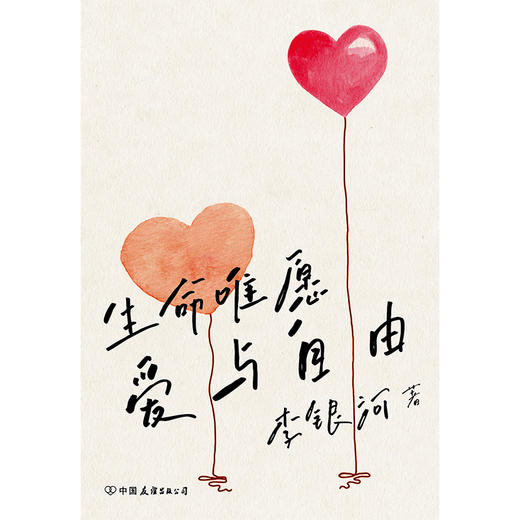 生命唯愿
爱与自由
李银河 著
中国友谊出版公司